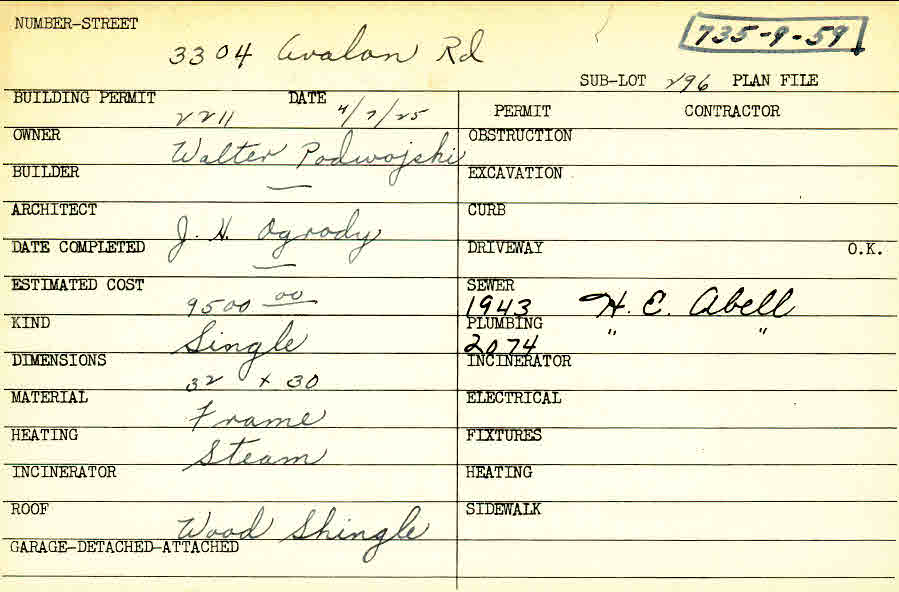 NUMBER-STREET
3304 Avalon Rd
735-9-59
SUB-LOT 296 PLAN FILE
BUILDING PERMIT 2211 DATE 4/7/25
PERMIT CONTRACTOR
OWNER Walter Podwojski
OBSTRUCTION
BUILDER —
EXCAVATION
ARCHITECT J. H. Ogrody
CURB
DATE COMPLETED —
DRIVEWAY O.K.
ESTIMATED COST 9500 00
SEWER 1943 H. E. Abell
KIND Single
PLUMBING 2074 " "
DIMENSIONS 32 x 30
INCINERATOR
MATERIAL Frame
ELECTRICAL
HEATING Steam
FIXTURES
INCINERATOR
HEATING
ROOF Wood Shingle
SIDEWALK
GARAGE-DETACHED-ATTACHED